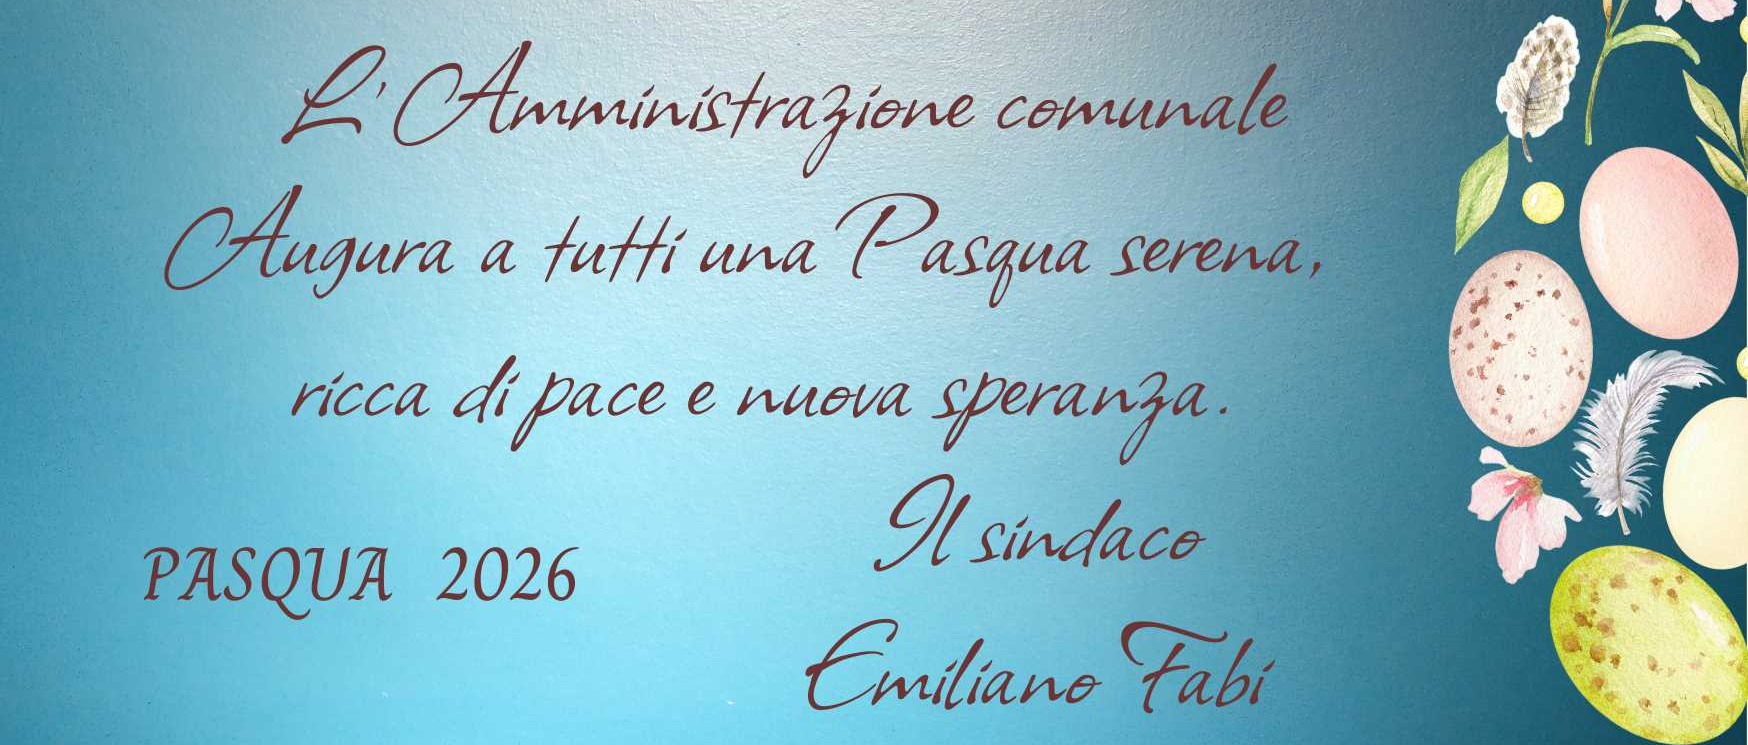 L'Amministrazione comunale
Augura a tutti una Pasqua serena,
ricca di pace e nuova speranza.
Il sindaco
PASQUA 2026
Emiliano Fabi